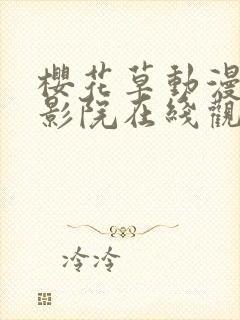 櫻花草動漫
影院在綫觀
冷冷